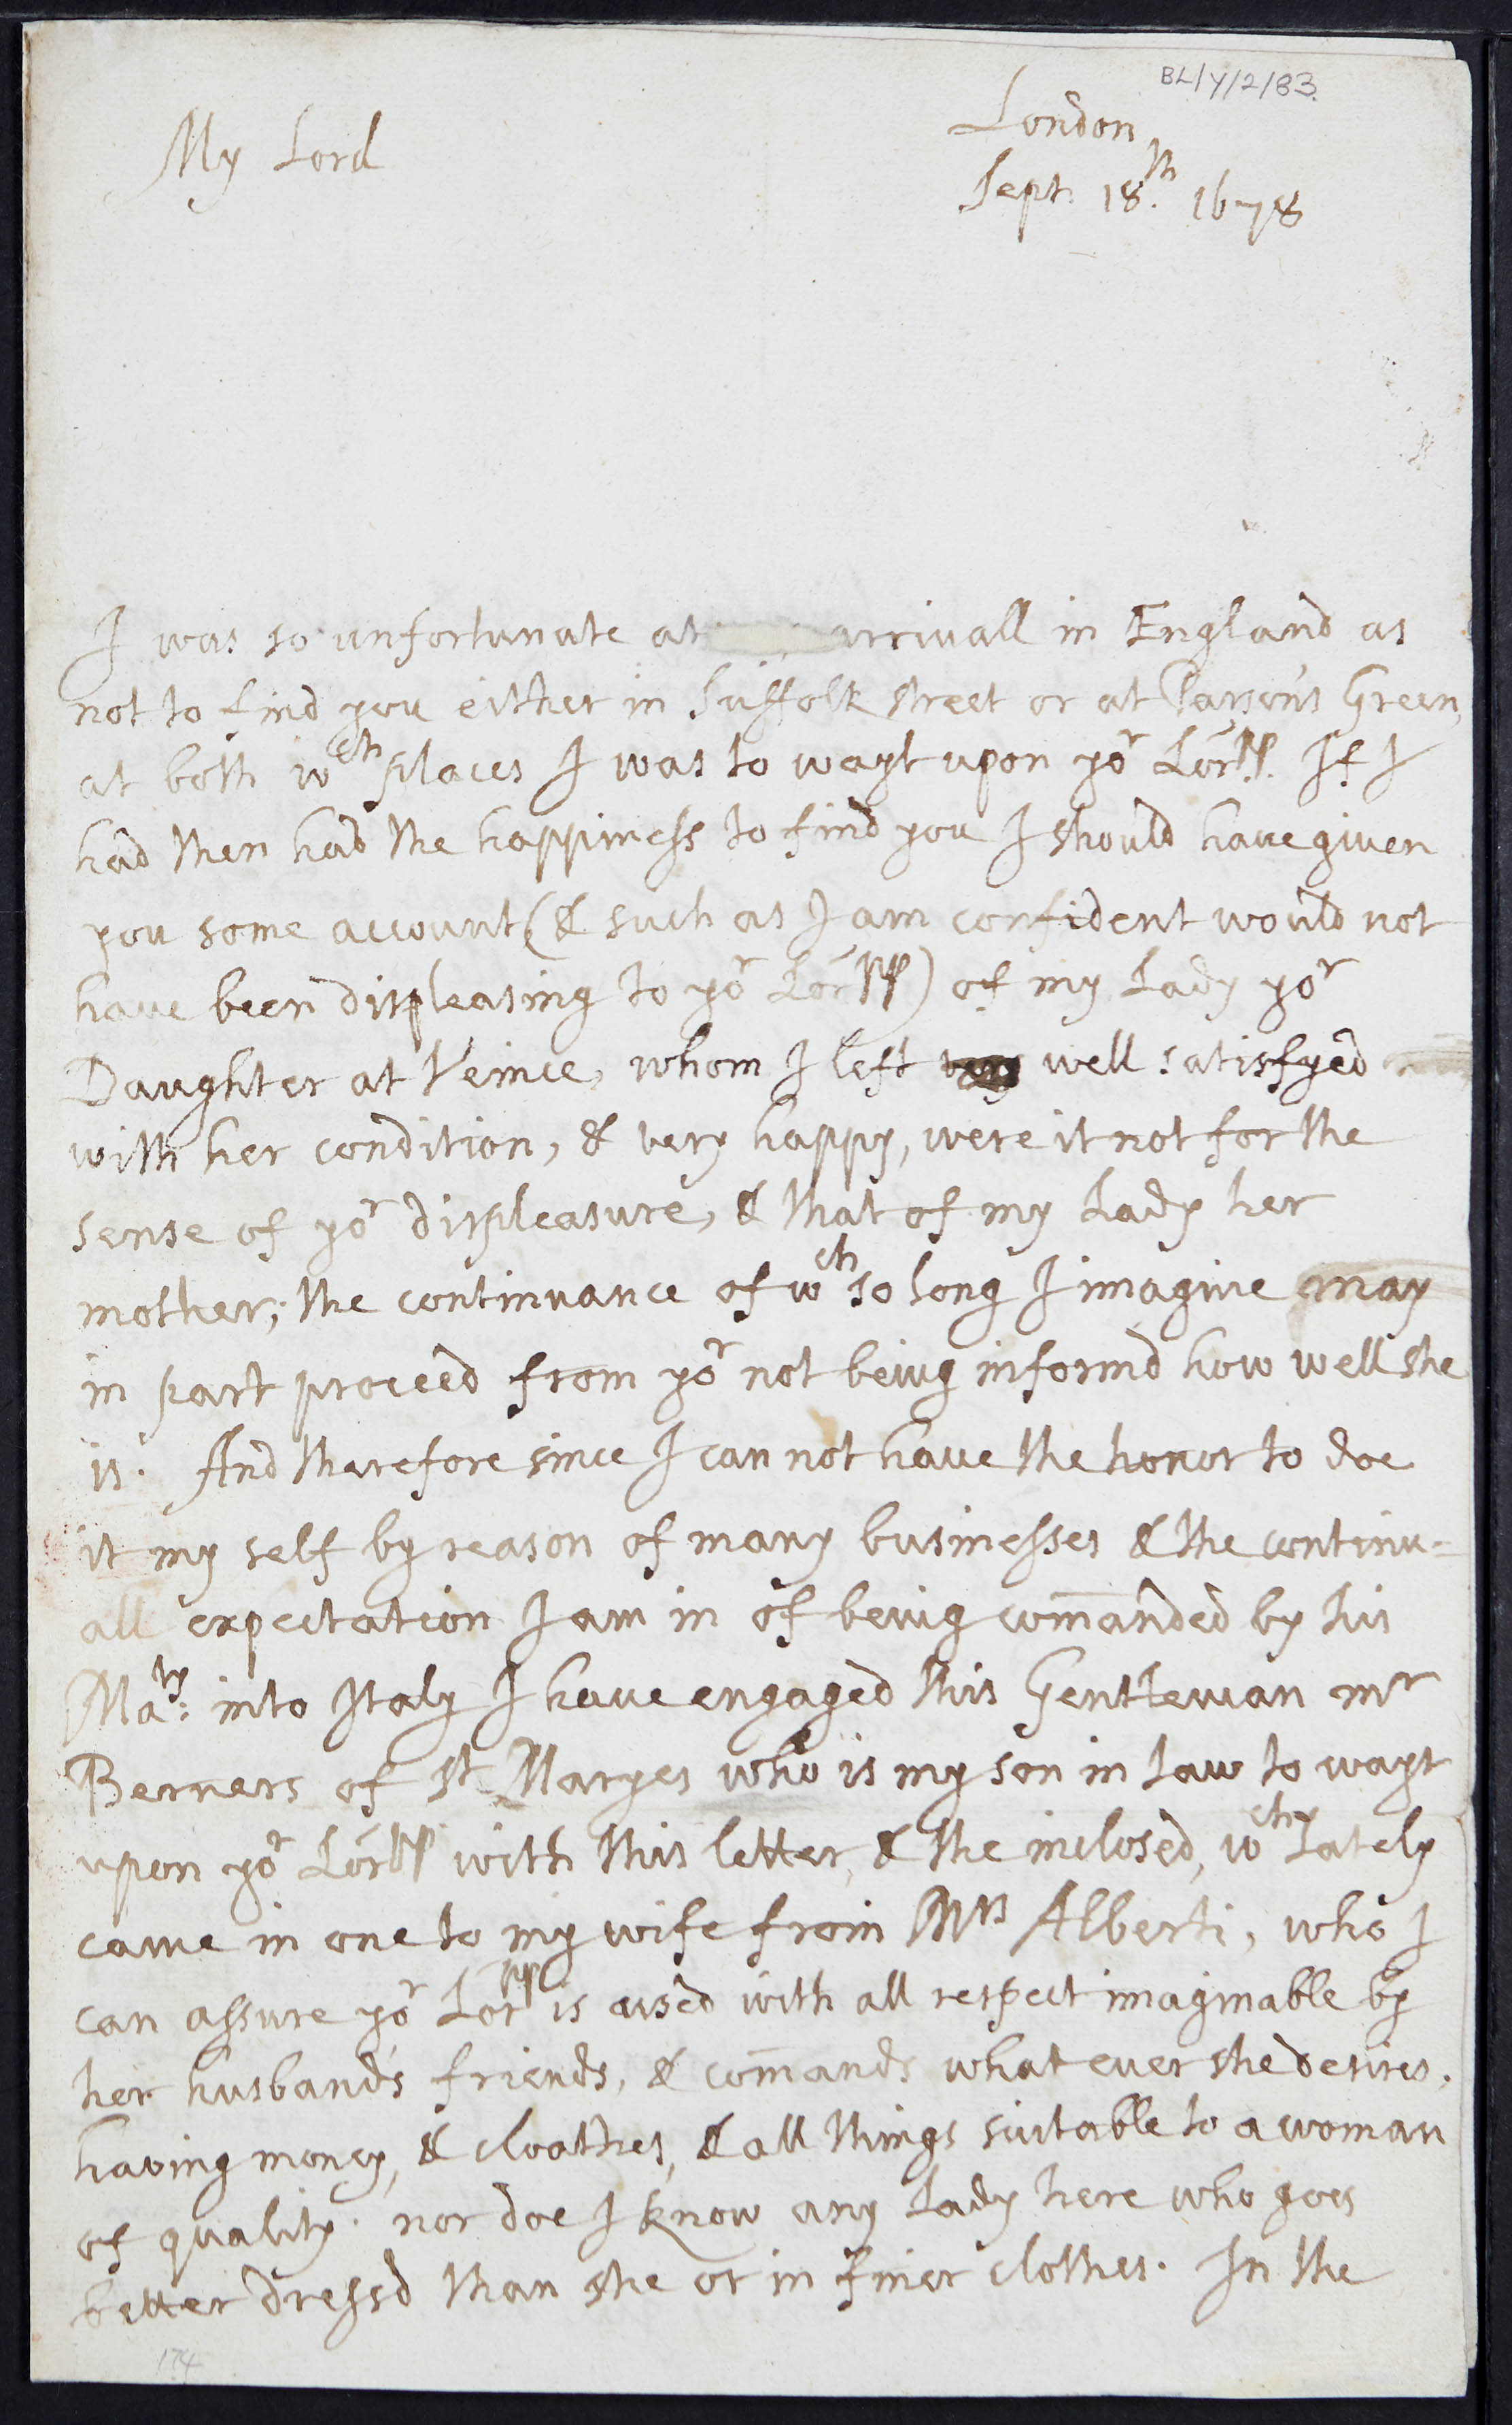 BL/Y/2/83.
London
My Lord
Sept. 18.th 1678
I was so unfortunate at arrivall in England as
not to find you either in Suffolk street or at Parson's Green,
at both wch places I was to wayt upon yor Lorpp. If I
had then had the happiness to find you I should haue giuen
you some account (& such as I am confident would not
haue been displeasing to yor Lorpp) of my Lady yor
Daughter at Venice, whom I left very well satisfyed
with her condition, & very happy, were it not for the
sense of yor displeasure, & that of my Lady her
mother; the continuance of wch so long I imagine may
in part proceed from yor not being informd how well she
is. And therefore since I can not haue the honor to doe
it my self by reason of many businesses & the continu=
all expectation I am in of being com̄anded by his
Maty: into Italy I haue engaged this Gentleman mr
Berners of St Maryes who is my son in law to wayt
upon yor Lorpp with this letter, & the inclosed, wch lately
came in one to my wife from Mrs Alberti, who I
can assure yor Lorpp is used with all respect imaginable by
her husband's friends, & com̄ands what euer she desires.
having money, & cloathes, & all things sutable to a woman
of quality. nor doe I know any Lady here who goes
better dressd than she or in finer clothes. In the
174